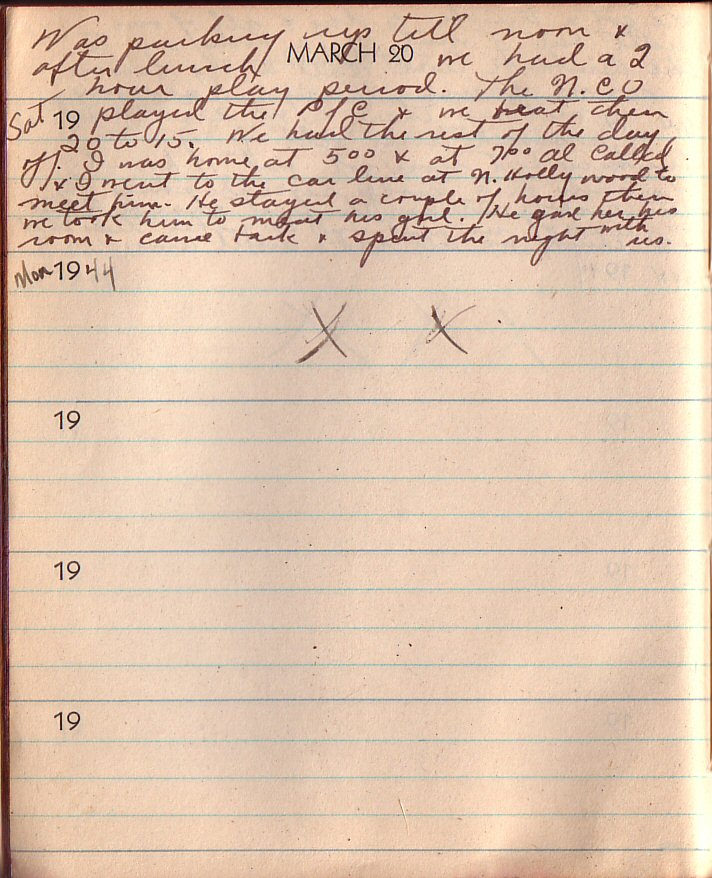 Was packing up till noon &
MARCH 20
after lunch we had a 2
hour play period. The N.C.O
Sat 19 played the Pfc & we beat them
20 to 15. We had the rest of the day
off. I was home at 5⁰⁰ & at 7⁰⁰ Al called
& I went to the car line at N. Hollywood to
meet him. He stayed a couple of hours then
we took him to meet his girl. He gave her his
room & came back & spent the night with us.
Mon 1944
X X
19
19
19